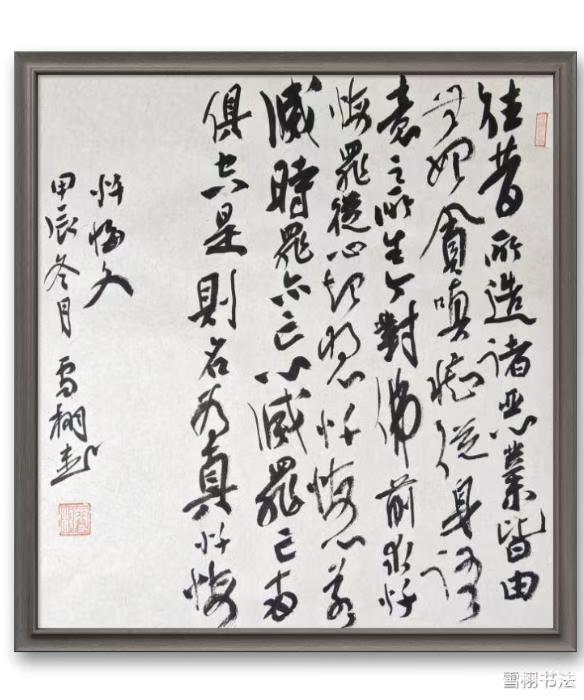 往昔所造诸恶業皆由
无始貪嗔痴從身语
意之所生今對佛前求忏
悔罪從心起将心忏悔心若
滅時罪亦亡心滅罪亡两
俱空是則名为真忏悔
忏悔文
甲辰冬月 雪栩書
雪栩书法